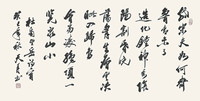 岱宗夫如何齊
魯青未了
造化鍾神秀陰
陽割昏曉
蕩胸生層雲決
眥入歸鳥
會當凌絕頂一
覽衆山小
杜甫望岳詩